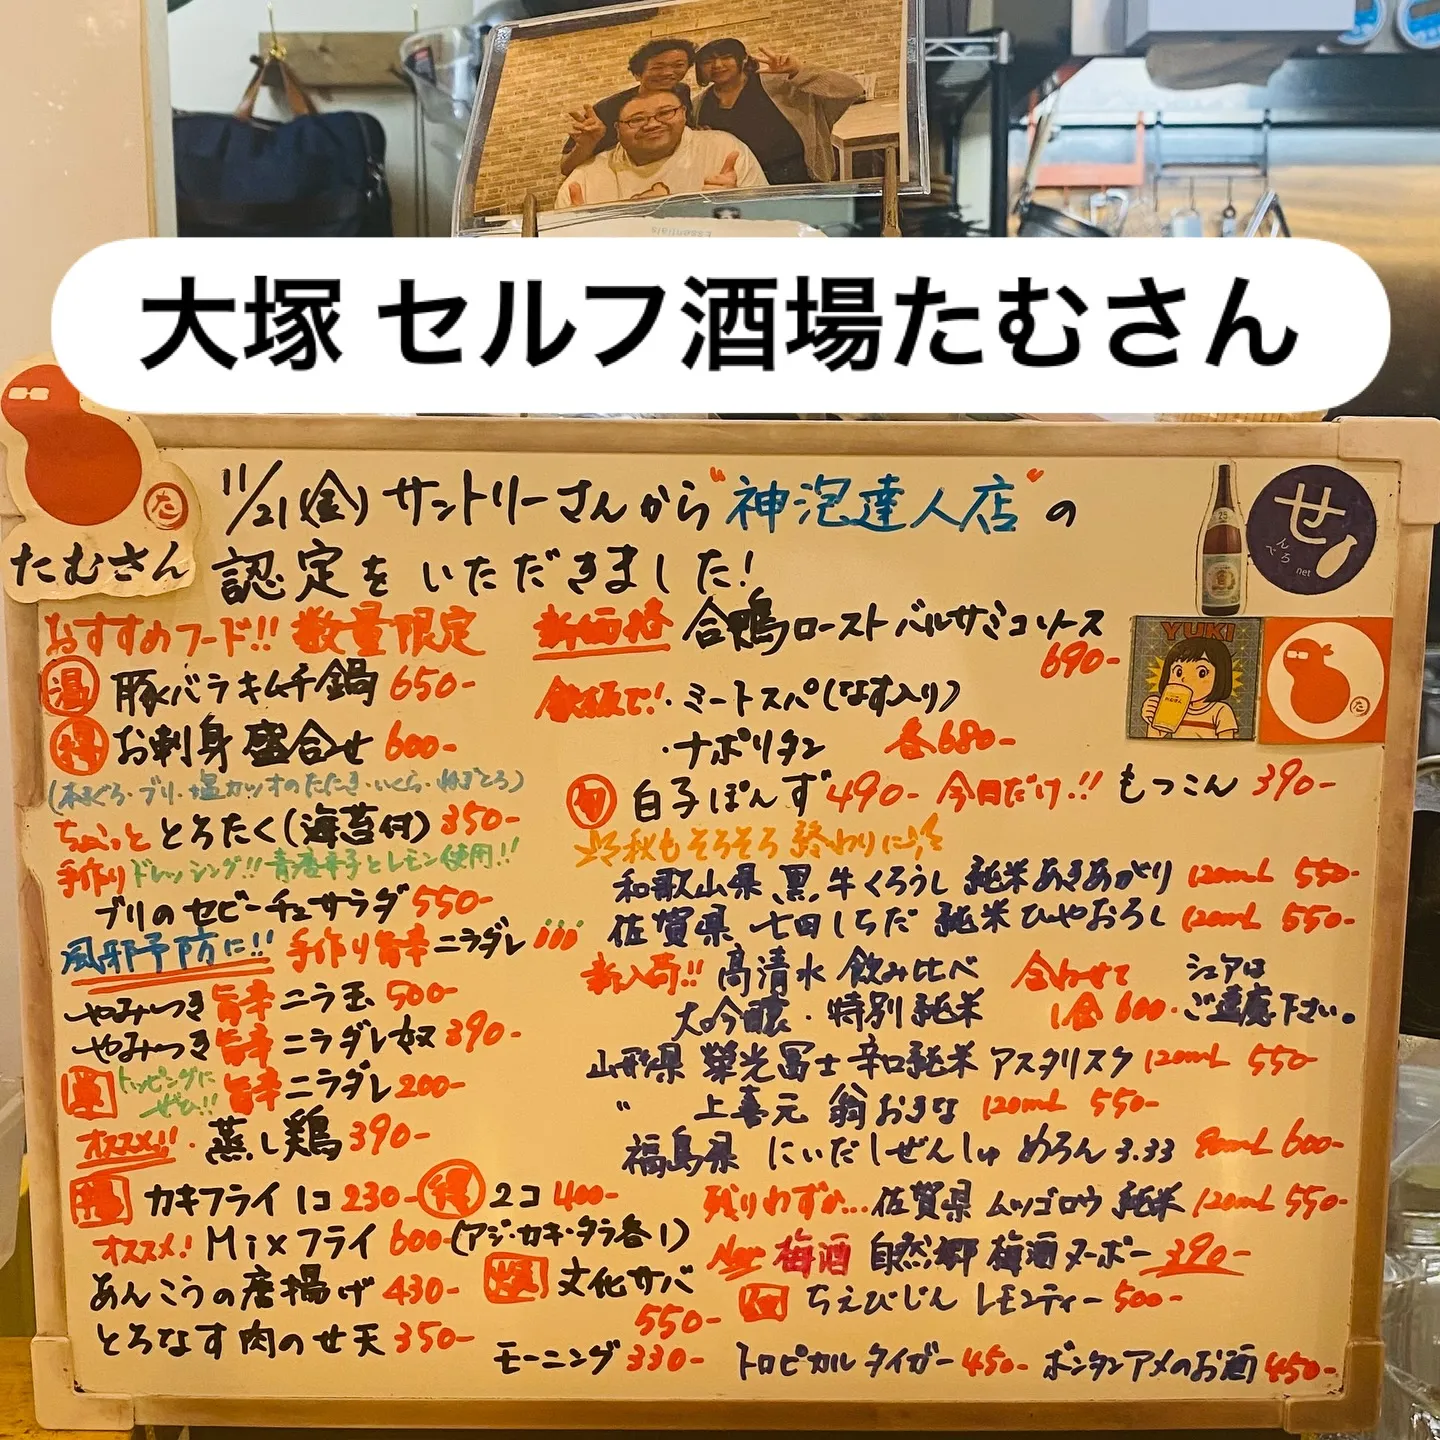 大塚 セルフ酒場たむさん
たむさん
11/21(金)サントリーさんから"神泡達人店"の
認定をいただきました!
せ
んべろ
net
YUKI
おすすめフード!! 数量限定
温 豚バラキムチ鍋 650-
得 お刺身盛合せ 600-
(本まぐろ・ブリ・塩カツオのたたき・いくら・ねぎとろ)
ちょっと とろたく(海苔付) 350-
手作りドレッシング!! 青唐辛子とレモン使用!!
ブリのセビーチェサラダ 550-
風邪予防に!! 手作り旨辛ニラダレ
やみつき旨辛ニラ玉 500-
やみつき旨辛ニラダレ奴 390-
トッピングにぜひ!! 旨辛ニラダレ 200-
オススメ!!・蒸し鶏 390-
カキフライ 1コ 230- 得 2コ 400-
オススメ! Mixフライ 600-(アジ・カキ・タラ各1)
あんこうの唐揚げ 430-
文化サバ 550-
とろなす肉のせ天 350-
新価格 合鴨ローストバルサミコソース 690-
鉄板で!・ミートスパ(なす入り)
・ナポリタン 各680-
旬 白子ぽんず 490- 今日だけ!! もつこん 390-
秋もそろそろ終わりに
和歌山県 黒牛くろうし 純米あきあがり 120mL 550-
佐賀県 七田しちだ 純米ひやおろし 120mL 550-
新入荷!! 高清水 飲み比べ 合わせて シェアは
大吟醸・特別純米 1合 600- ご遠慮下さい。
山形県 榮光冨士 辛口純米 アスタリスク 120mL 550-
〃 上喜元 翁おきな 120mL 550-
福島県 にいだしぜんしゅ めろん3.33 90mL 600-
残りわずか… 佐賀県 ムツゴロウ 純米 120mL 550-
New 梅酒 自然郷 梅酒ヌーボー 390-
ちえびじん レモンティー 500-
モーニング 330- トロピカルタイガー 450- ボンタンアメのお酒 450-